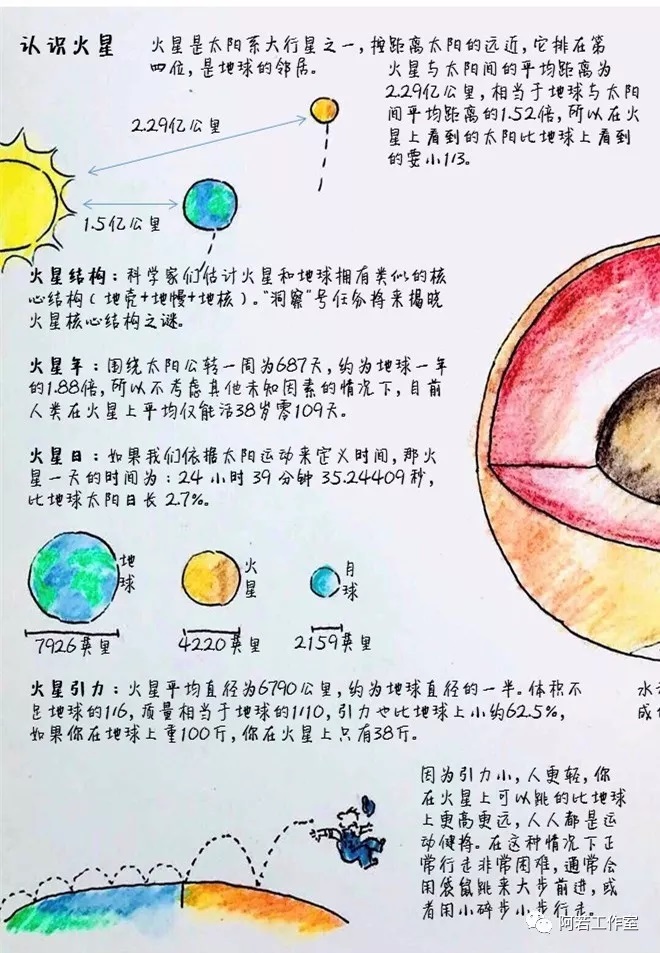 认识火星
火星是太阳系大行星之一，按距离太阳的远近，它排在第
四位，是地球的邻居。
火星与太阳间的平均距离为
2.29亿公里，相当于地球与太阳
间平均距离的1.52倍，所以在火
星上看到的太阳比地球上看到
的要小1/3。
2.29亿公里
1.5亿公里
火星结构：科学家们估计火星和地球拥有类似的核
心结构（地壳+地慢+地核）。“洞察”号任务将来揭晓
火星核心结构之谜。
火星年：围绕太阳公转一周为687天，约为地球一年
的1.88倍，所以不考虑其他未知因素的情况下，目前
人类在火星上平均仅能活38岁零109天。
火星日：如果我们依据太阳运动来定义时间，那火
星一天的时间为：24 小时 39 分钟 35.24409 秒，
比地球太阳日长 2.7%。
地球
火星
月球
7926英里
4220英里
2159英里
火星引力：火星平均直径为6790公里，约为地球直径的一半。体积不
足地球的1/6，质量相当于地球的1/10，引力也比地球上小约62.5%，
如果你在地球上重100斤，你在火星上只有38斤。
水
成
因为引力小，人更轻，你
在火星上可以跳的比地球
上更高更远，人人都是运
动健将。在这种情况下正
常行走非常困难，通常会
用袋鼠跳来大步前进，或
者用小碎步小步行走。
阿若工作室